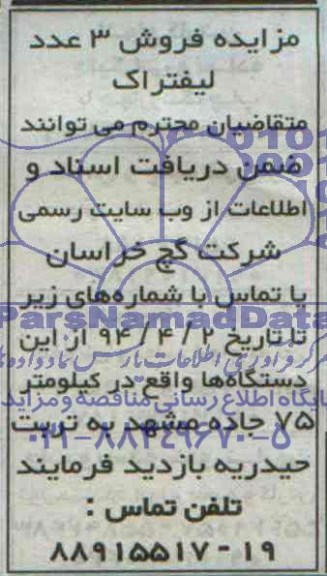 مزایده فروش ۳ عدد
لیفتراک
متقاضیان محترم می توانند
ضمن دریافت اسناد و
اطلاعات از وب سایت رسمی
شرکت گچ خراسان
یا تماس با شماره‌های زیر
ParsNamadData
تا تاریخ ۹۴/۴/۲ از این
دستگاه‌ها واقع در کیلومتر
پایگاه اطلاع رسانی مناقصه و مزایده
۷۵ جاده مشهد به تربت
۰۲۱-۸۸۳۴۹۶۷۰-۵
حیدریه بازدید فرمایند
تلفن تماس :
۸۸۹۱۵۵۱۷-۱۹